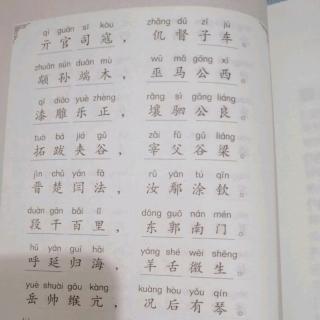 qí guān sī kòu zhǎng dū zǐ jū
亓官司寇，仉督子车。
zhuān sūn duān mù wū mǎ gōng xī
颛孙端木，巫马公西。
qī diāo yuè zhèng rǎng sì gōng liáng
漆雕乐正，壤驷公良。
tuò bá jiá gǔ zǎi fǔ gǔ liáng
拓跋夹谷，宰父谷梁。
jìn chǔ yán fǎ rǔ yān tú qīn
晋楚闫法，汝鄢涂钦。
duàn gān bǎi lǐ dōng guō nán mén
段干百里，东郭南门。
hū yán guī hǎi yáng shé wēi shēng
呼延归海，羊舌微生。
yuè shuài gōu kàng kuàng hòu yǒu qín
岳帅缑亢，况后有琴。